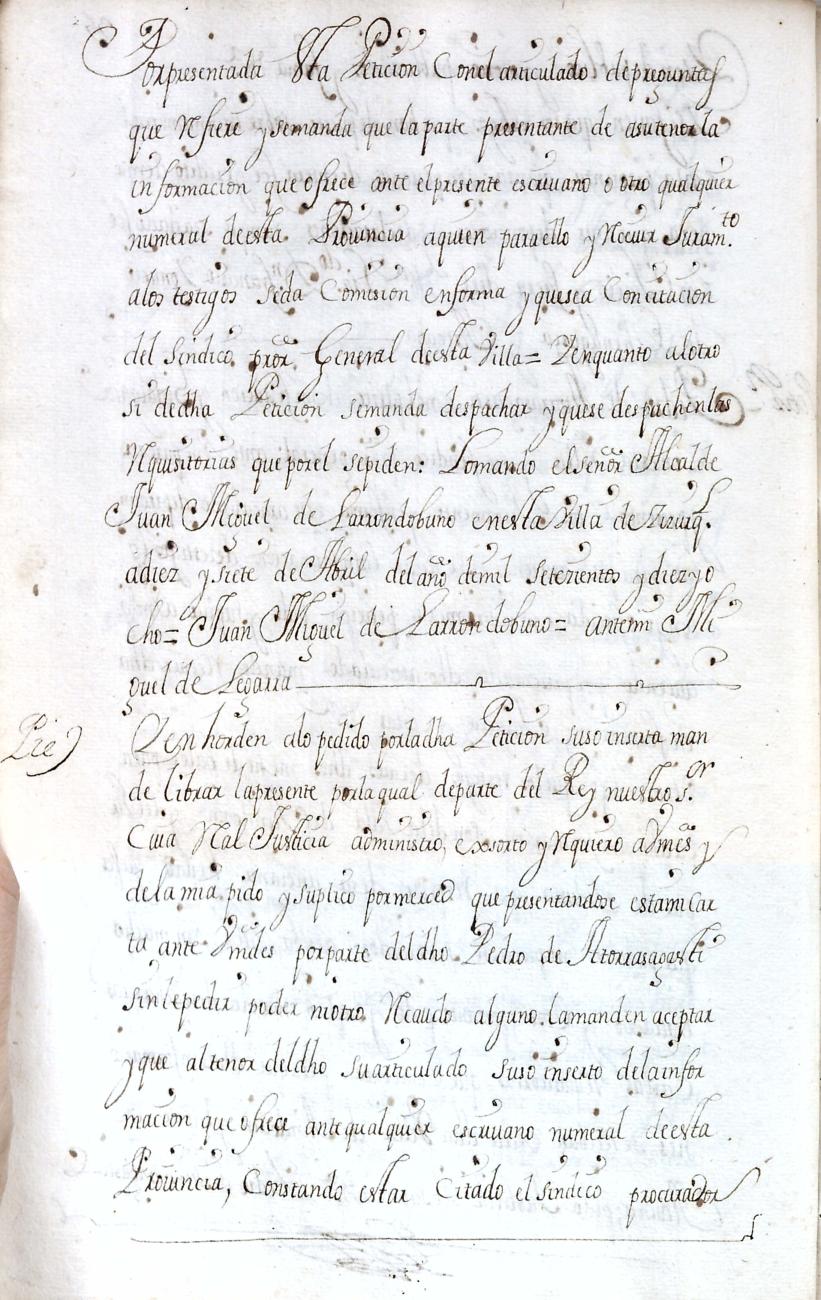 Por presentada Esta Peticion Con el articulado de preguntas
que Refiere y se manda que la parte presentante de a su tenor la
informacion que ofrece ante el presente escriuano o otro qualquier
numeral de esta Prouincia a quien para ello y Receuir Juram.to
a los testigos se da Comision en forma y que sea Con citacion
del sindico pror General de esta Villa = Y en quanto al otro
si de dha Peticion se manda despachar y que se despachen las
Requisitorias que por el se piden: Lo mando el señor Alcalde
Juan Miguel de Larrondobuno en esta Villa de Zizurq.l
a diez y siete de Abril del año de mil setezientos y diez y o
cho = Juan Miguel de Larrondobuno = ante mi Mi
guel de Legarra
Pie) Y en horden a lo pedido por la dha Peticion suso inserta man
de librar la presente por la qual de parte del Rey nuestro s.or
Cuia Real Justicia administro, exsorto y Requiero a Vmes y
de la mia pido y suplico por merced que presentandose esta mi Car
ta ante Vmdes por parte del dho Pedro de Atorrasagasti
sin le pedir poder ni otro Recaudo alguno. la manden aceptar
y que al tenor del dho su articulado suso inserto de la infor
macion que ofrece ante qualquier escriuano numeral de esta
Prouincia, Constando estar Citado el sindico procurador